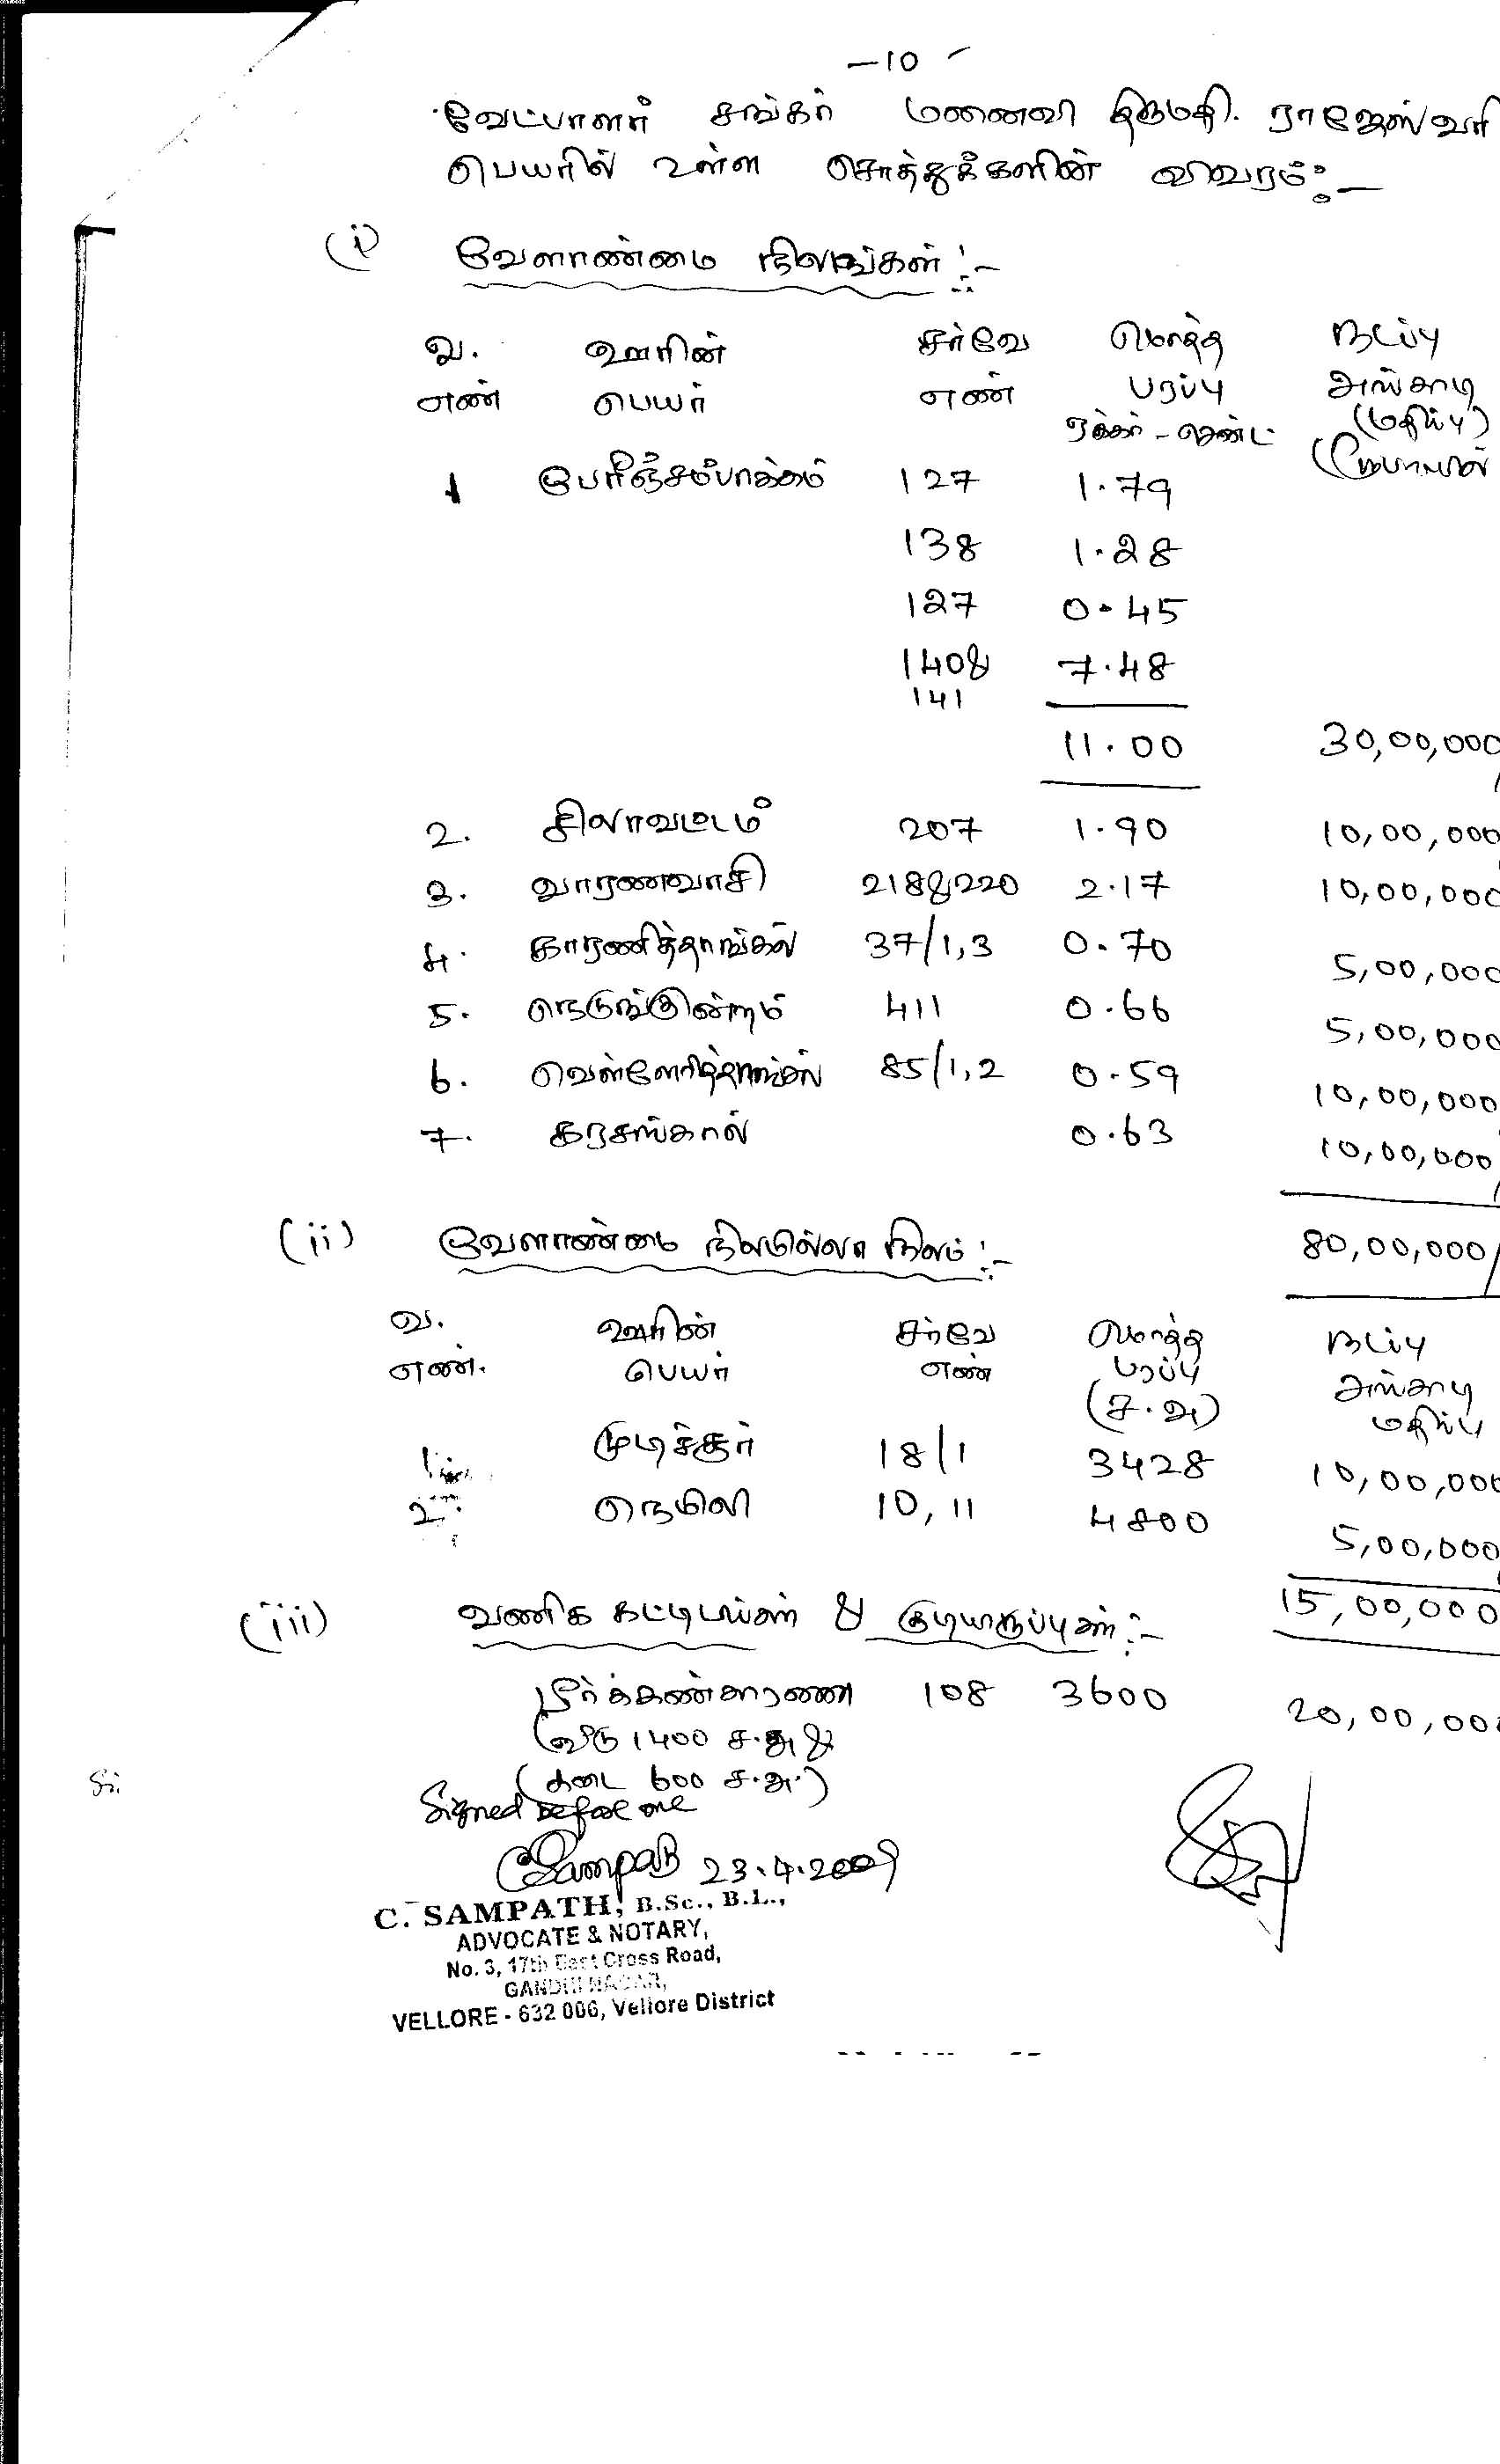 -10-
வேட்பாளர் சங்கர் மனைவி திருமதி. ராஜேஸ்வரி
பெயரில் உள்ள சொத்துக்களின் விவரம்:-
(i) வேளாண்மை நிலங்கள்:-
வ. ஊரின் சர்வே மொத்த நடப்பு
எண் பெயர் எண் பரப்பு அங்காடி
ஏக்கர் - செண்ட் (மதிப்பு)
(ரூபாயில்
1 பேரிஞ்சம்பாக்கம் 127 1.79
138 1.28
127 0.45
140& 7.48
141
11.00 30,00,000
2. சிலாவட்டம் 207 1.90 10,00,000
3. வாரணவாசி 218&220 2.17 10,00,000
4. காரணித்தாங்கல் 37/1,3 0.70 5,00,000
5. நெடுங்குன்றம் 411 0.66 5,00,000
6. வெள்ளேரித்தாங்கல் 85/1,2 0.59 10,00,000
7. கரசங்கால் 0.63 10,00,000
80,00,000/
(ii) வேளாண்மை நிலமில்லா நிலம்:-
வ. ஊரின் சர்வே மொத்த நடப்பு
எண். பெயர் எண் பரப்பு அங்காடி
(ச.அ) மதிப்பு
1. முடிச்சூர் 18/1 3428 10,00,000
2. நெமிலி 10, 11 4800 5,00,000
15,00,000
(iii) வணிக கட்டிடங்கள் & குடியிருப்புகள்:-
பீர்க்கன்காரணை 108 3600 20,00,000
(வீடு 1400 ச.அ &
(கடை 600 ச.அ.)
Signed before me
CSampath 23.4.2009
C. SAMPATH, B.Sc., B.L.,
ADVOCATE & NOTARY,
No. 3, 17th East Cross Road,
GANDHI NAGAR,
VELLORE - 632 006, Vellore District